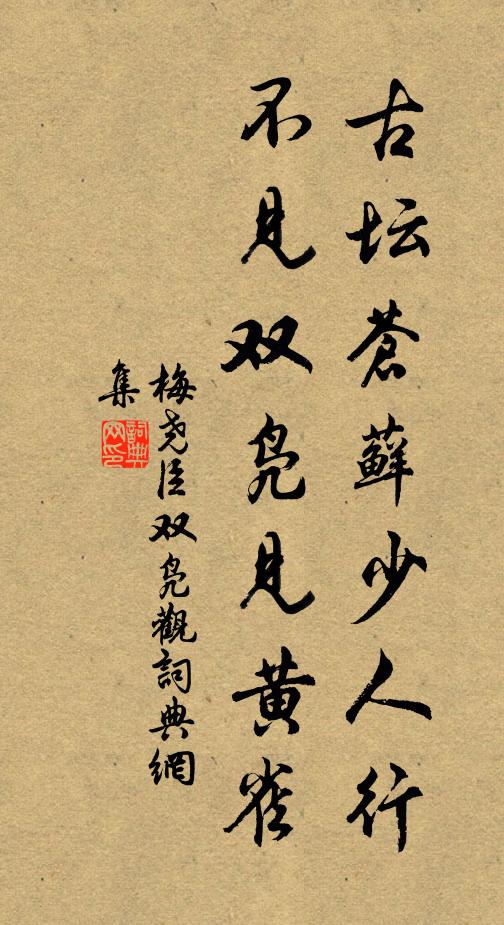 古坛苍藓少人行
不见双凫见黄雀
梅尧臣双凫觀詞典網
集
詞典网印